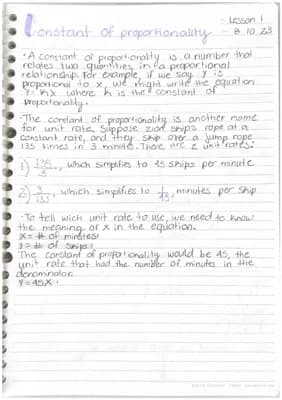 Constant of proportionality
Lesson 1
8.10.23
· A constant of proportionality is a number that
relates two quantities in a proportional
relationship. For example, if we say y is
proportional to x, we might write the equation
y = kx where k is the constant of
Proportionality.
· The constant of proportionality is another name
for unit rate. Suppose zion skips rope at a
constant rate, and they skip over a jump rope
135 times in 3 minute. There are 2 unit rates:
1) 135/3, which simplifies to 45 skips per minute
2) 3/135, which simplifies to 1/45, minutes per skip
· To tell wich unit rate to use, we need to know
the meaning of x in the equation.
x = # of minutes:
y = # of skips:
The constant of proportionality would be 45, the
unit rate that had the number of minutes in the
denominator.
y = 45x.